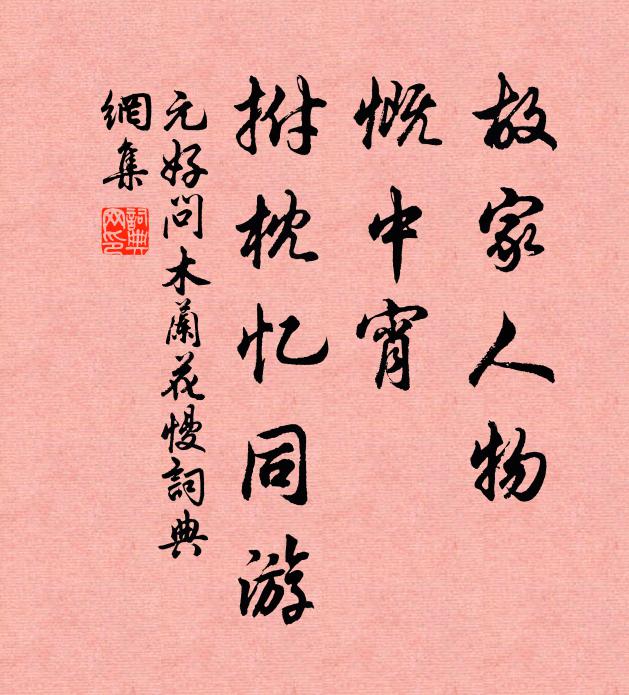 故家人物
慨中宵
拊枕忆同游
元好问木蘭花慢詞典
網集
詞典
网印